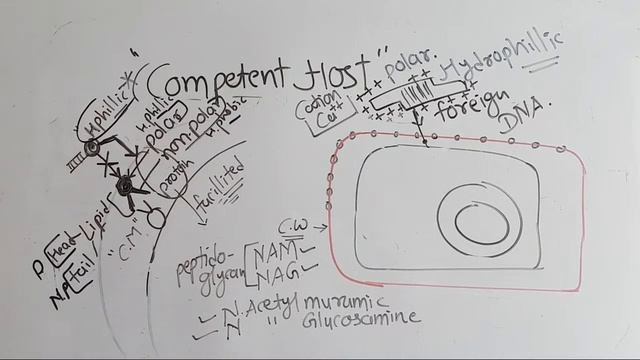 "Competent Host"
polar.
Hydrophillic
Cation
Ca++
foreign
DNA.
Hphillic
H.philic
polar
non-polar
H.phobic
protein
facillited
P Head-Lipid
N.P Tail
"C.M"
C.W →
peptido-
glycan
NAM
NAG
N. Acetyl muramic
N " Glucosamine